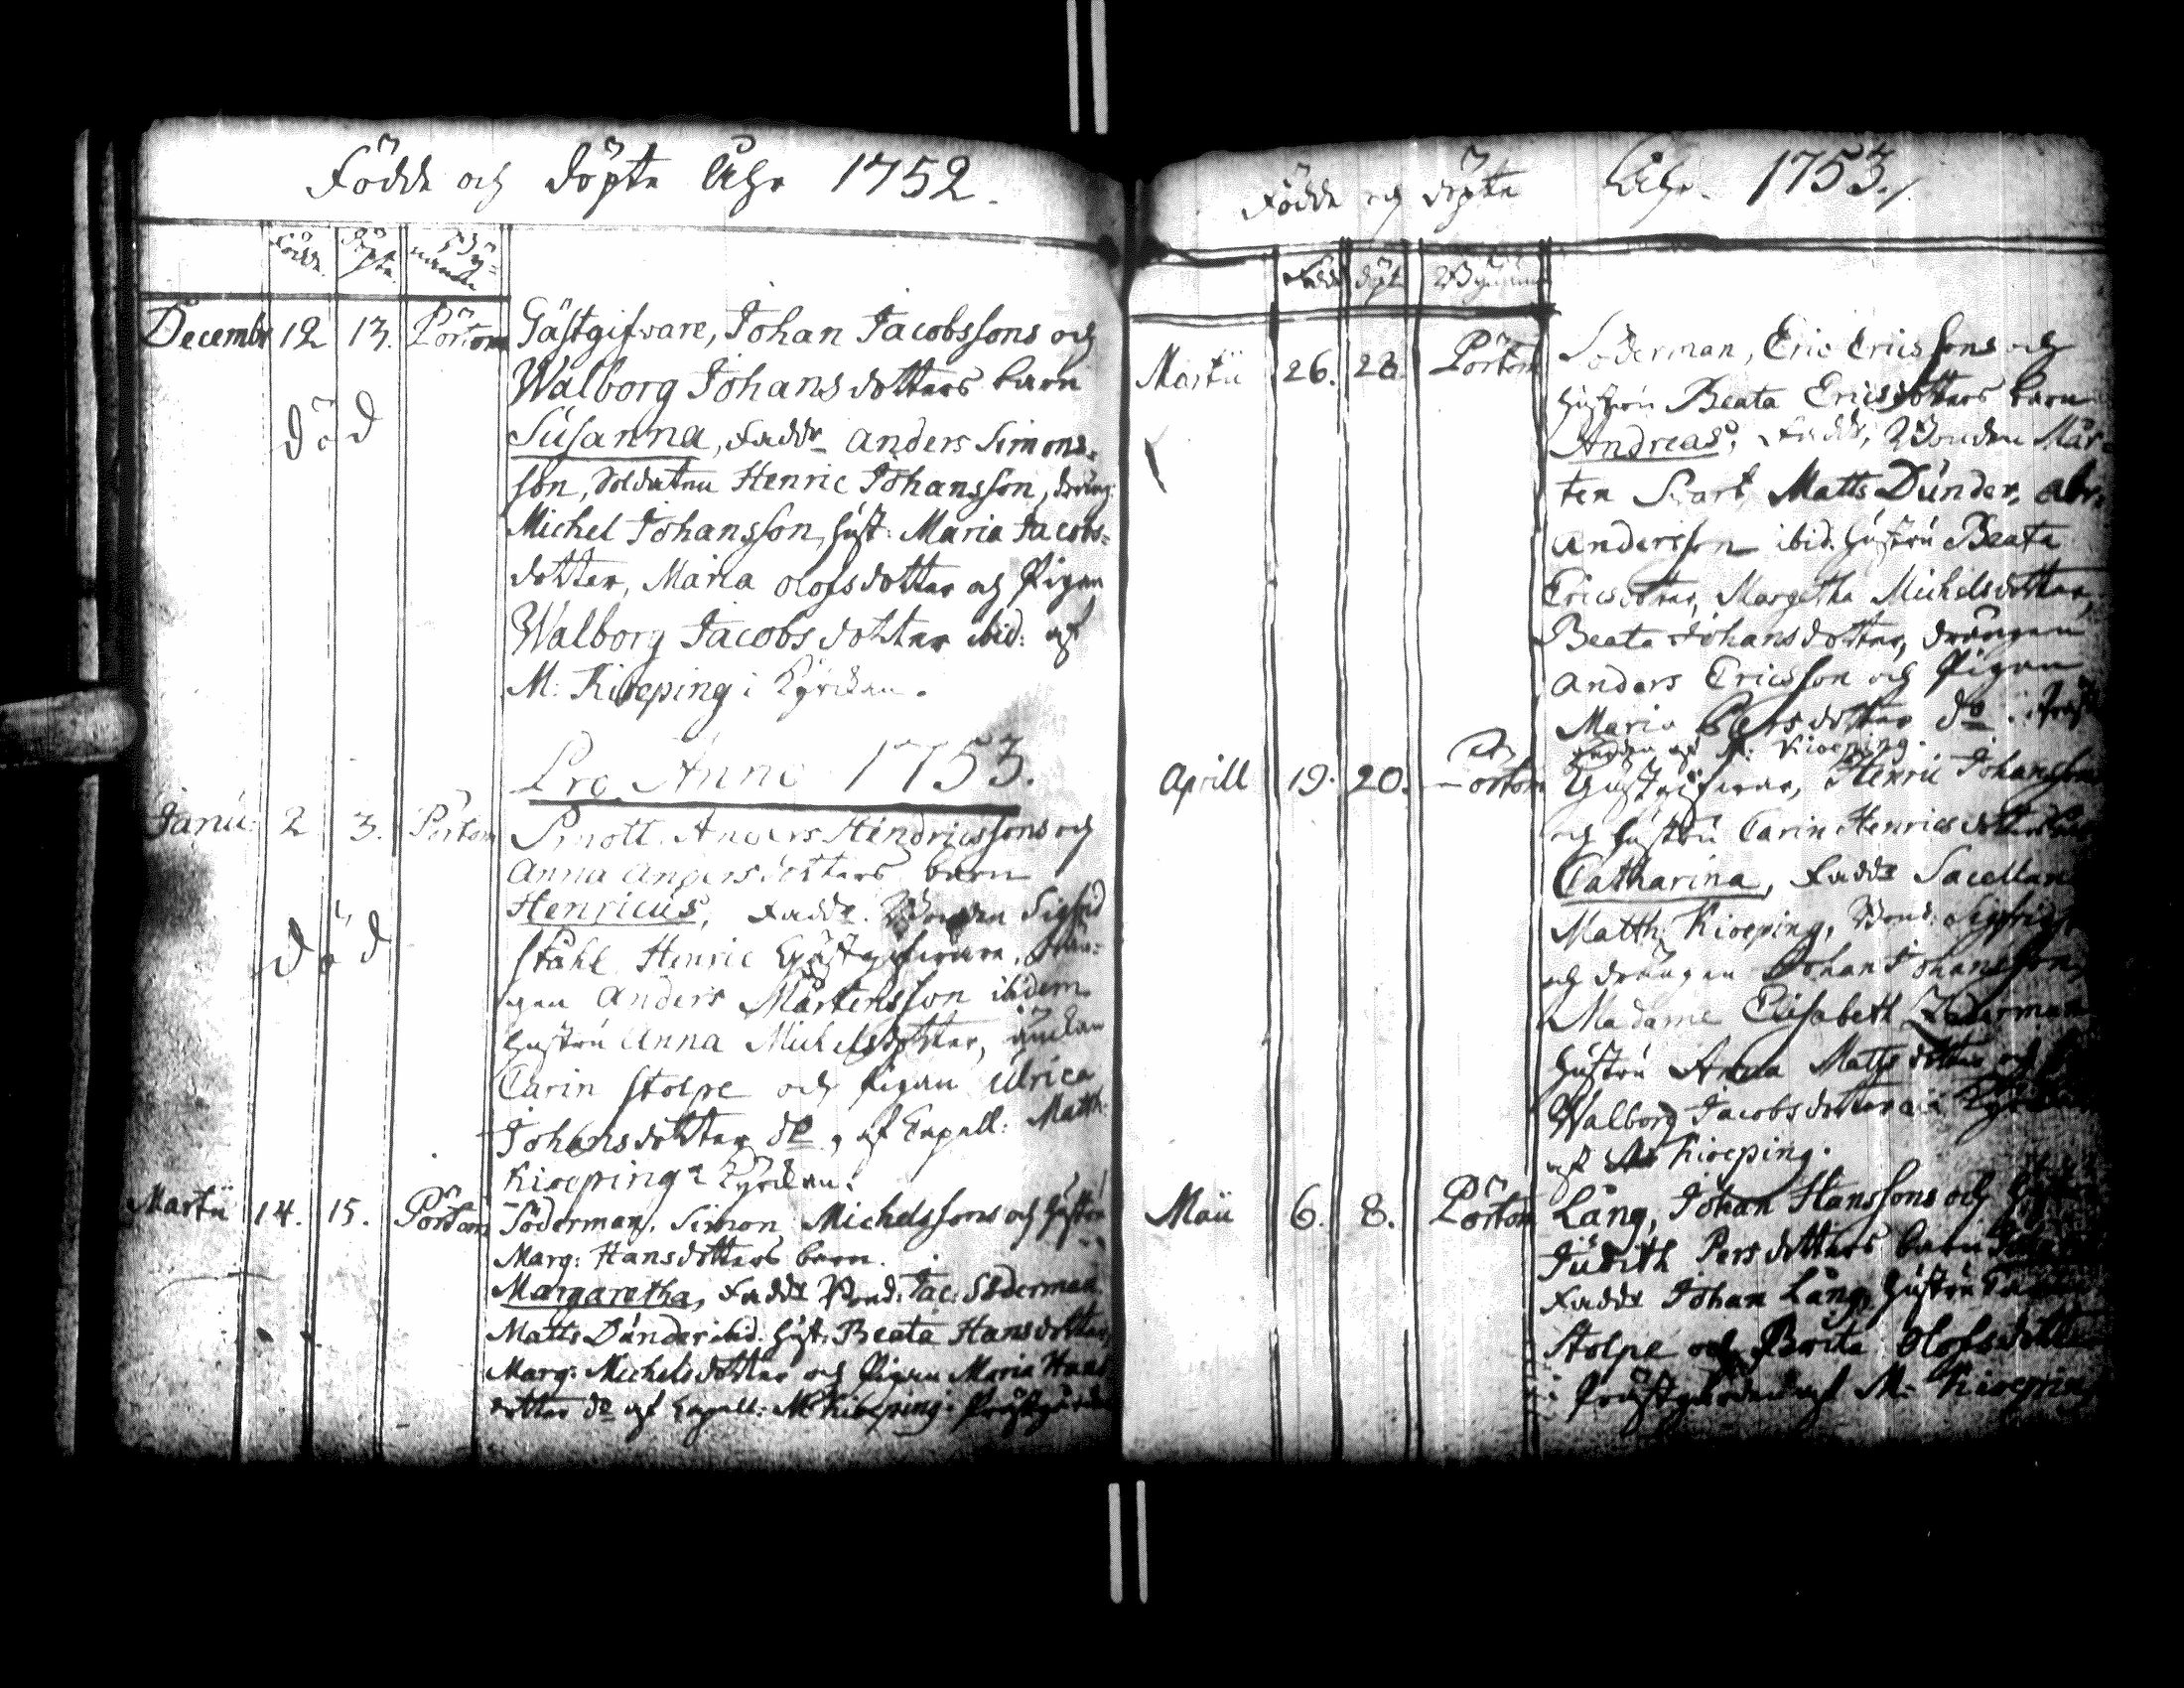 Födde och döpte Åhr 1752.
Födde. Döpte. Bÿ=
namn
Decembr 12 13. Pörtom Gästgifvare, Johan Jacobssons och
Walborg Johansdotters barn
död
Susanna, Fadd. Anders Simons=
son, Soldaten Henric Johansson, dräng.
Michel Johansson, hust: Maria Jacobs=
dotter, Maria Olofsdotter och Pigan
Walborg Jacobsdotter ibid: af
M: Kioeping i Kyrckan.
Pro Anno 1753.
Janu: 2 3. Pörtom Smott. Anders Hindricssons och
Anna Andersdotters barn
Henricus, Fadd. Bonden Sigfrid
död
Ståhl Henric Gästgifware, drän=
gen Anders Mårtensson ibidem
hustru Anna Michelsdotter, änckan
Carin Stolpe och Pigan Ulrica
Johansdotter do, af Capell: Matth:
Kioeping i Kyrckan.
Martii 14. 15. Pörtom Söderman, Simon Michelssons och hustru
Marg: Hansdotters barn.
Margaretha, Fadd. Bond: Jac: Söderman
Matts Dunder ibid. hust. Beata Hansdotter,
Marg: Michelsdotter och Pigan Maria Hans
dotter do af Capell: M Kioeping i Prästgården
Födde och döpte Åhr. 1753.
Född döpt Bÿnamn
Martii 26. 28. Pörtom Söderman, Eric Ericssons och
hustru Beata Ericsdotters barn
Andreas, Fadd, Bonden Mår=
ten Svart, Matts Dunder, Abr:
Andersson ibid. hustru Beata
Ericsdotter, Margetha Michelsdotter,
Beata Johansdotter, drängen
Anders Ericsson och Pigan
Maria Persdotter do i Präst
gården af M: Kioeping.
Aprill 19. 20. Pörtom Gästgifvare, Henric Johanssons
och hustru Carin Henricsdotters
Catharina, Fadd Sacellan
Matth: Kioeping, Bond: Sigfrid
och drängen Johan Johansson,
Madame Elisabeth
hustru Anna Mattsdotter och
Walborg Jacobsdotter i Kyrckan
af M Kioeping.
Maii 6. 8. Pörtom Lång, Johan Hanssons och
Judith Persdotters barn
Fadd Johan Lång, hustru
Stolpe och Brita Olofsdotter
i Prästgården af M: Kioeping